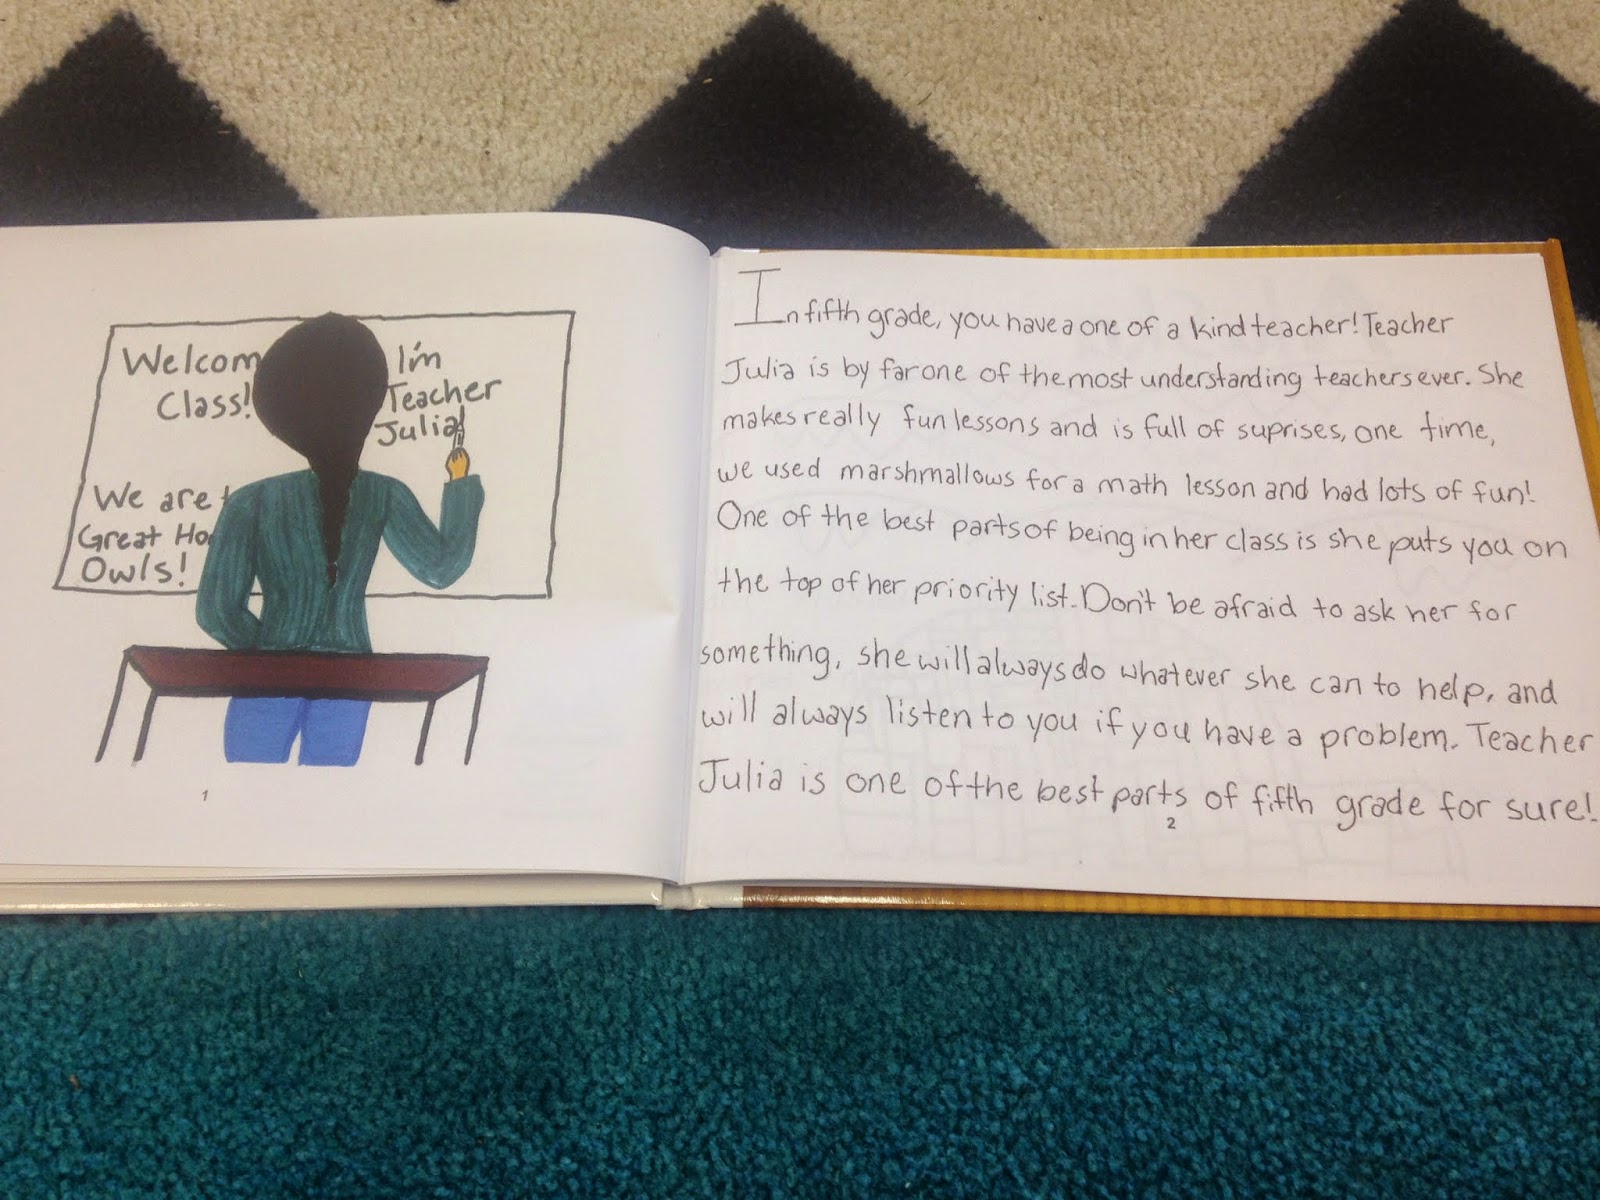 Welcom
Class!
I'm
Teacher
Julia
We are t
Great Ho
Owls!
1
In fifth grade, you have a one of a kind teacher! Teacher
Julia is by far one of the most understanding teachers ever. She
makes really fun lessons and is full of suprises, one time,
we used marshmallows for a math lesson and had lots of fun!
One of the best parts of being in her class is she puts you on
the top of her priority list. Don't be afraid to ask her for
something, she will always do whatever she can to help, and
will always listen to you if you have a problem. Teacher
Julia is one of the best parts of fifth grade for sure!
2